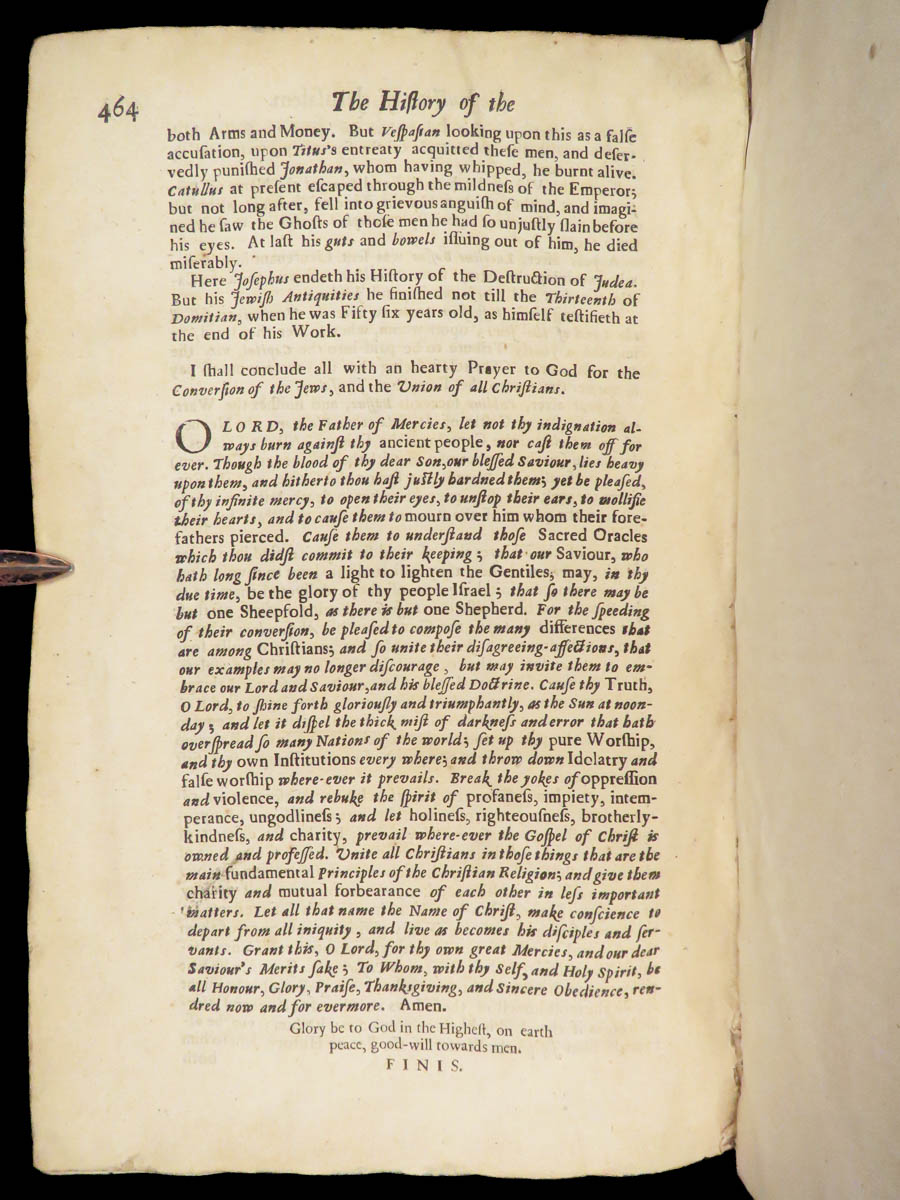 464 The Hiſtory of the
both Arms and Money. But Veſpaſian looking upon this as a falſe
accuſation, upon Titus's entreaty acquitted theſe men, and deſer-
vedly puniſhed Jonathan, whom having whipped, he burnt alive.
Catullus at preſent eſcaped through the mildneſs of the Emperor;
but not long after, fell into grievous anguiſh of mind, and imagi-
ned he ſaw the Ghoſts of thoſe men he had ſo unjuſtly ſlain before
his eyes. At laſt his guts and bowels iſſuing out of him, he died
miſerably.
Here Joſephus endeth his Hiſtory of the Deſtruction of Judea.
But his Jewiſh Antiquities he finiſhed not till the Thirteenth of
Domitian, when he was Fifty ſix years old, as himſelf teſtifieth at
the end of his Work.
I ſhall conclude all with an hearty Prayer to God for the
Converſion of the Jews, and the Union of all Chriſtians.
O LORD, the Father of Mercies, let not thy indignation al-
ways burn againſt thy ancient people, nor caſt them off for
ever. Though the blood of thy dear Son, our bleſſed Saviour, lies heavy
upon them, and hitherto thou haſt juſtly hardned them; yet be pleaſed,
of thy infinite mercy, to open their eyes, to unſtop their ears, to mollifie
their hearts, and to cauſe them to mourn over him whom their fore-
fathers pierced. Cauſe them to underſtand thoſe Sacred Oracles
which thou didſt commit to their keeping; that our Saviour, who
hath long ſince been a light to lighten the Gentiles, may, in thy
due time, be the glory of thy people Iſrael; that ſo there may be
but one Sheepfold, as there is but one Shepherd. For the ſpeeding
of their converſion, be pleaſed to compoſe the many differences that
are among Chriſtians; and ſo unite their diſagreeing-affections, that
our examples may no longer diſcourage, but may invite them to em-
brace our Lord and Saviour, and his bleſſed Doctrine. Cauſe thy Truth,
O Lord, to ſhine forth gloriouſly and triumphantly, as the Sun at noon-
day; and let it diſpel the thick miſt of darkneſs and error that hath
overſpread ſo many Nations of the world; ſet up thy pure Worſhip,
and thy own Inſtitutions every where; and throw down Idolatry and
falſe worſhip where-ever it prevails. Break the yokes of oppreſſion
and violence, and rebuke the ſpirit of profaneſs, impiety, intem-
perance, ungodlineſs; and let holineſs, righteouſneſs, brotherly-
kindneſs, and charity, prevail where-ever the Goſpel of Chriſt is
owned and profeſſed. Unite all Chriſtians in thoſe things that are the
main fundamental Principles of the Chriſtian Religion; and give them
charity and mutual forbearance of each other in leſs important
matters. Let all that name the Name of Chriſt, make conſcience to
depart from all iniquity, and live as becomes his diſciples and ſer-
vants. Grant this, O Lord, for thy own great Mercies, and our dear
Saviour's Merits ſake; To Whom, with thy Self, and Holy Spirit, be
all Honour, Glory, Praiſe, Thankſgiving, and Sincere Obedience, ren-
dred now and for evermore. Amen.
Glory be to God in the Higheſt, on earth
peace, good-will towards men.
FINIS.